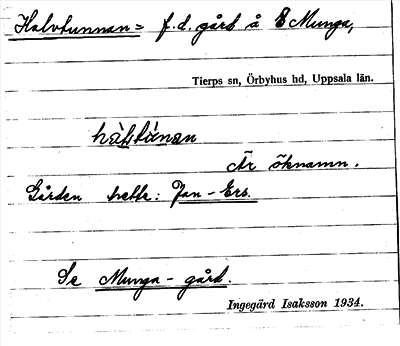 Halvtunnan = f.d. gård å Munga,
Tierps sn, Örbyhus hd, Uppsala län.
Är öknamn.
Gården hette: Jan-Ers.
Se Munga-gård.
Ingegärd Isaksson 1934.